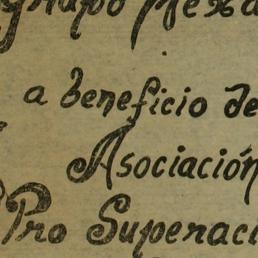 grupo
a beneficio de
Asociación
Pro Superaci